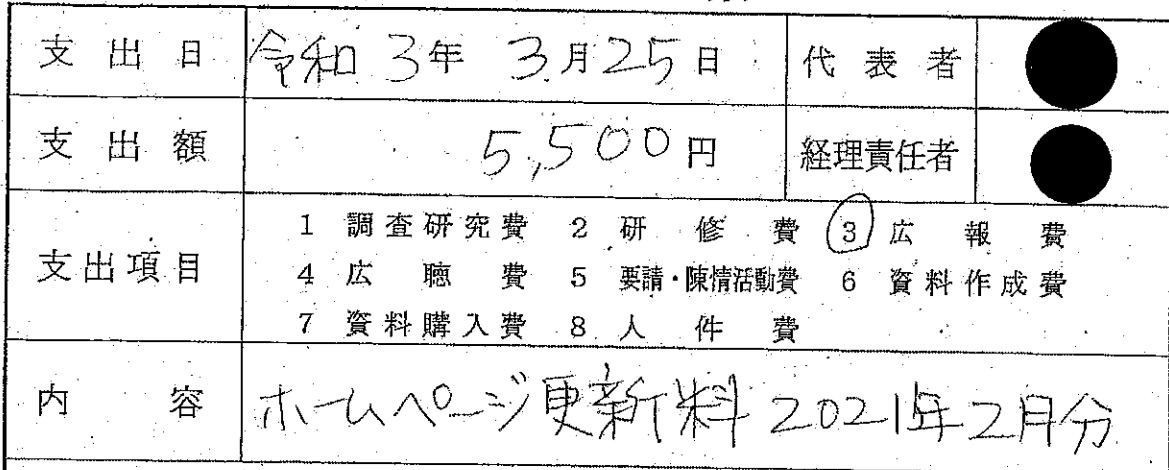 支出日 令和3年 3月25日 代表者
支出額 5,500円 経理責任者
支出項目
1 調査研究費 2 研修費 3 広報費
4 広聴費 5 要請・陳情活動費 6 資料作成費
7 資料購入費 8 人件費
内容 ホームページ更新料 2021年2月分